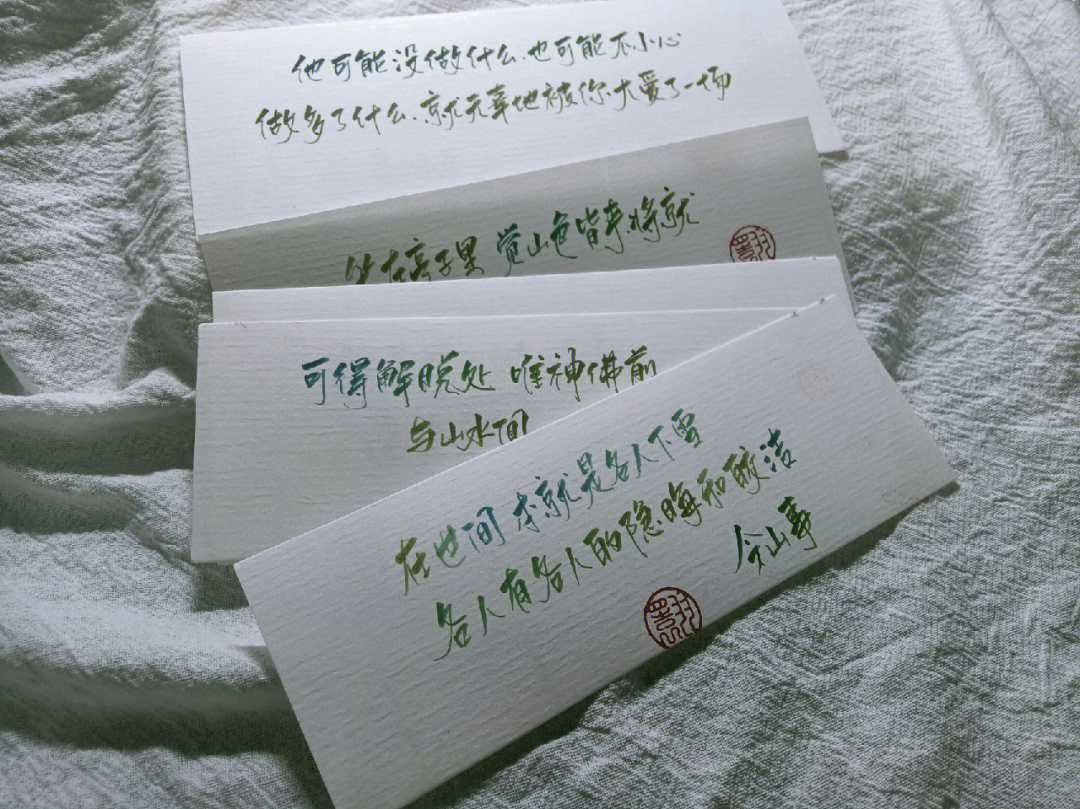 他可能没做什么、也可能不小心
做多了什么、就无辜地被你大爱了一场
坐在亭子里 觉山色皆来将就
可得解脱处 唯神佛前
与山水间
在世间 本就是各人下雪
各人有各人的隐晦和皎洁
余山事